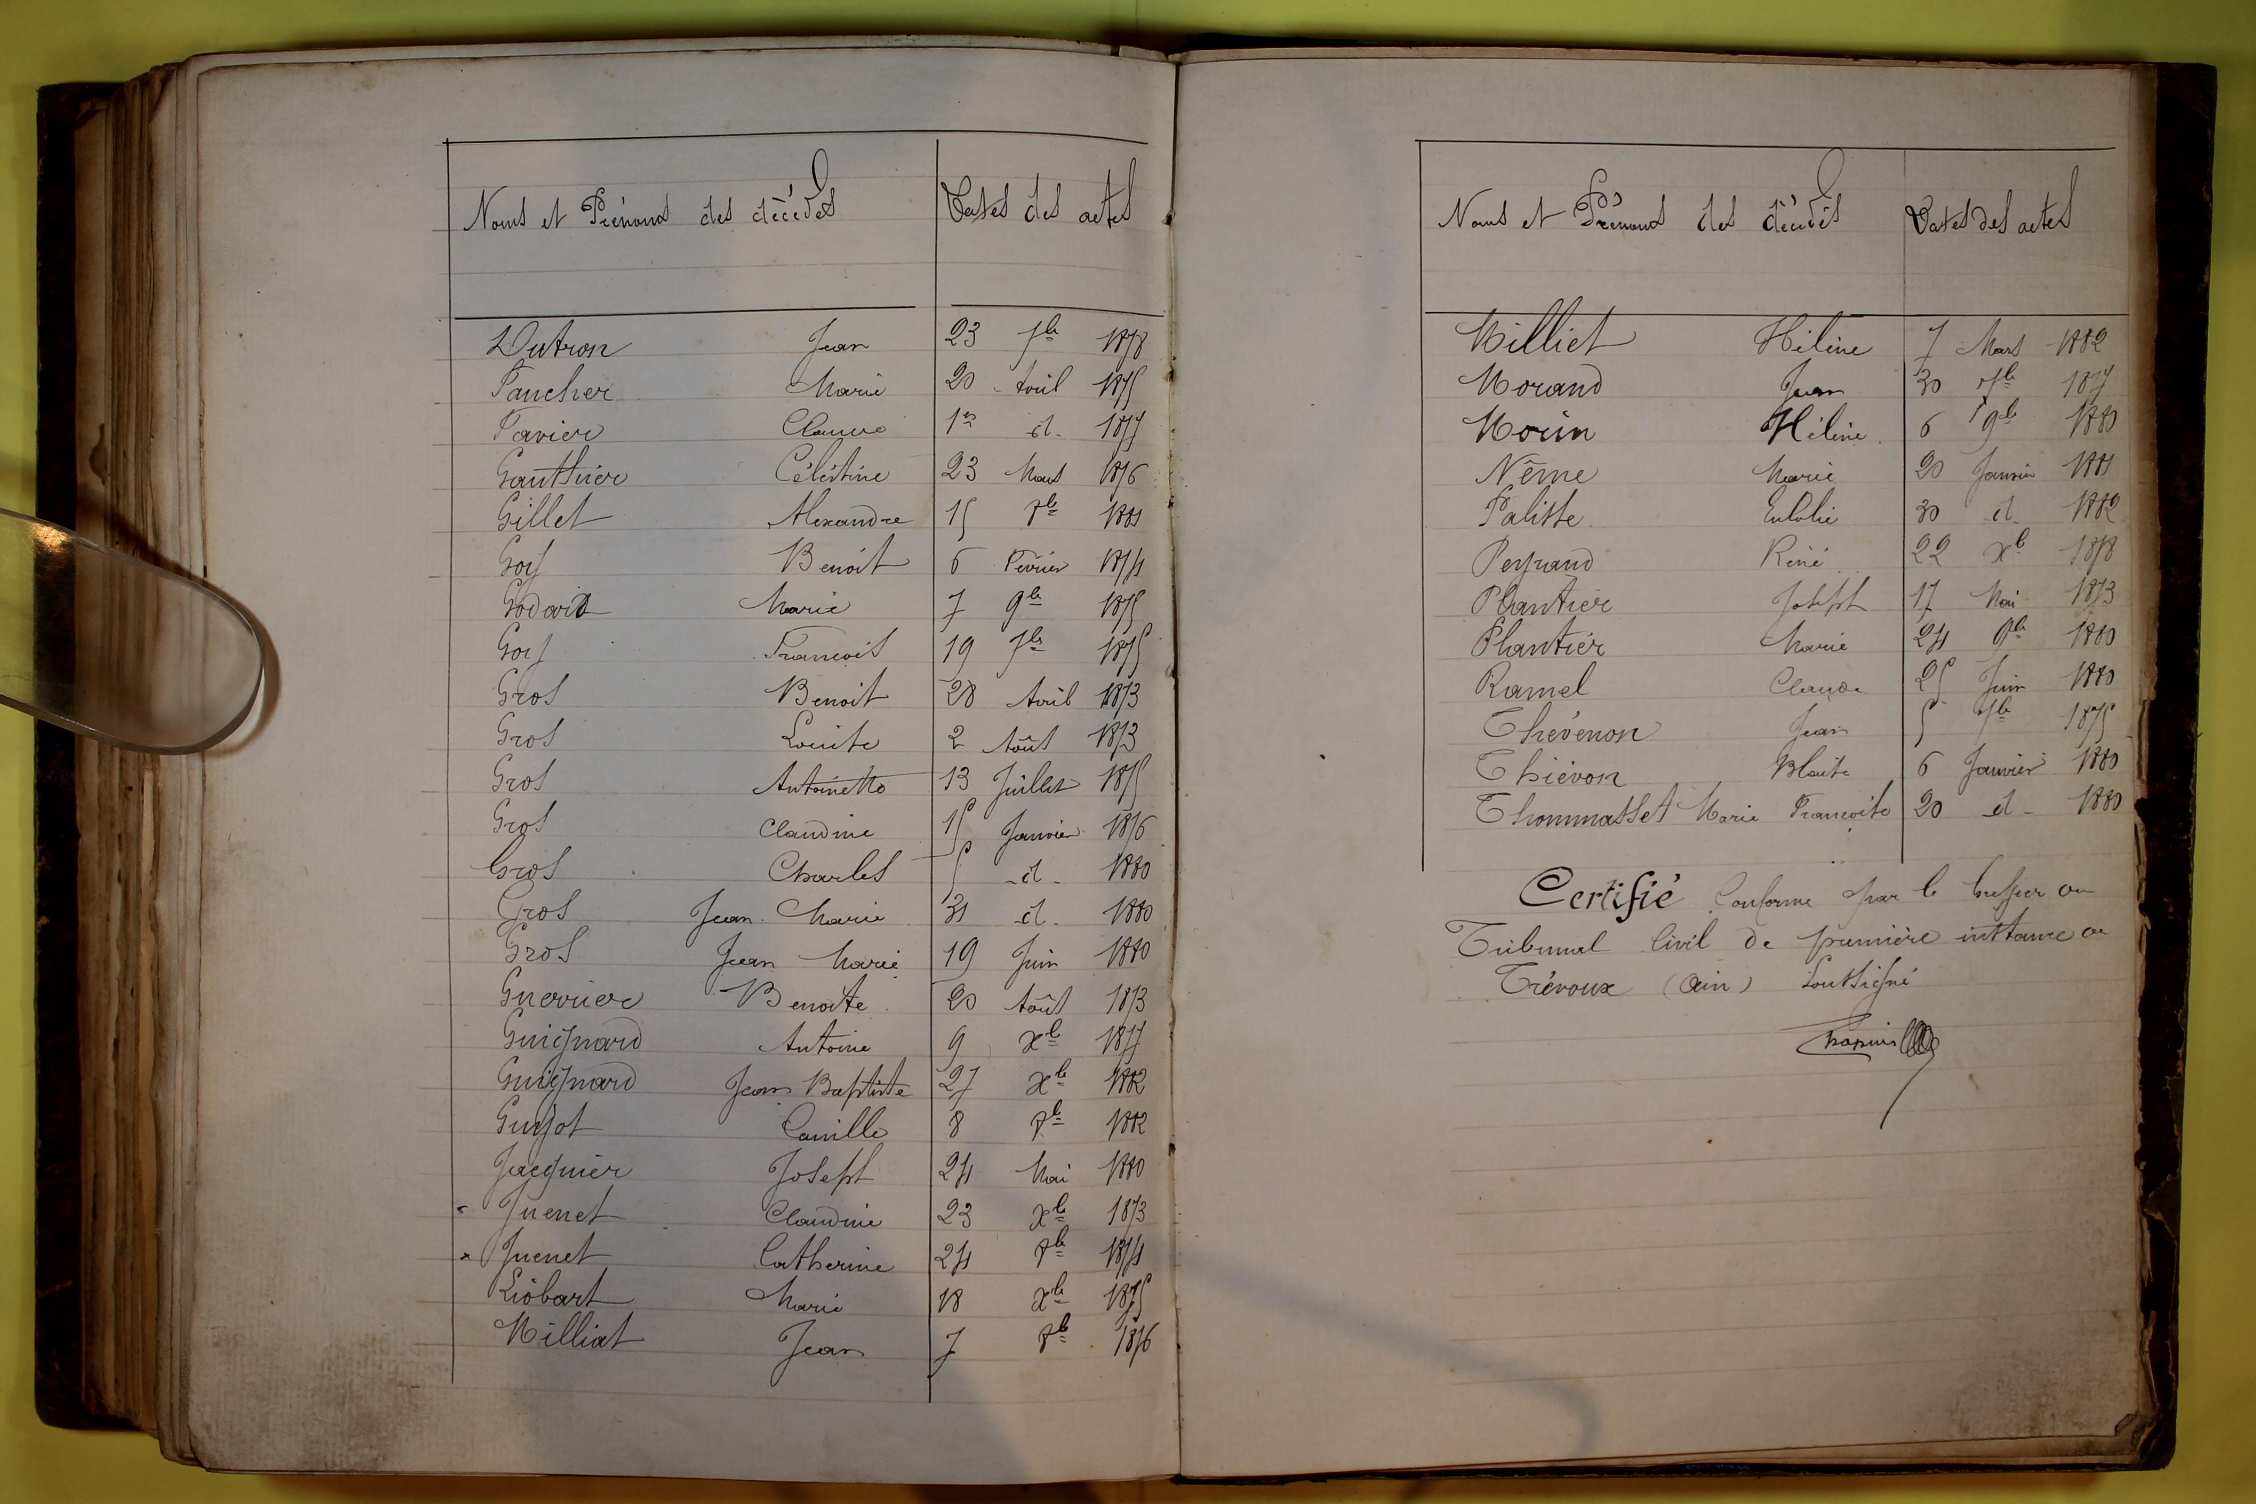 Noms et Prénoms des décédés Dates des actes
Dutron Jean 23 7b 1878
Faucher Marie 20 Avril 1875
Favier Claude 1er d- 1877
Gauthier Célestine 23 Mars 1876
Gillet Alexandre 15 8b 1881
Goy Benoit 6 Février 1874
Godard Marie 7 9b 1875
Goy François 19 7b 1875
Gros Benoit 28 Avril 1873
Gros Louise 2 Août 1873
Gros Antoinette 13 Juillet 1875
Gros Claudine 15 Janvier 1876
Gros Charles 5 -d- 1880
Gros Jean Marie 31 d- 1880
Gros Jean Marie 19 Juin 1880
Guerrier Benoîte 20 Août 1873
Guignard Antoine 9 Xb 1877
Guignard Jean Baptiste 27 Xb 1882
Guyot Camille 8 8b 1882
Jacquier Joseph 24 Mai 1880
Juenet Claudine 23 Xb 1873
Juenet Catherine 24 8b 1874
Liobart Marie 18 Xb 1875
Milliat Jean 7 8b 1876
Noms et Prénoms des décédés Dates des actes
Milliet Hélène 7 Mars 1882
Morand Jean 30 7b 1877
Morin Hélène 6 9b 1880
Nême Marie 20 Janvier 1881
Palisse Eulalie 30 d- 1882
Peyraud Réné 22 Xb 1878
Plantier Joseph 17 Mai 1873
Plantier Marie 24 9b 1880
Ramel Claude 25 Juin 1880
Thévenon Jean 5 7b 1875
Thiévon Blaise 6 Janvier 1880
Thommasset Marie Françoise 20 d- 1880
Certifié Conforme par le Greffier du
Tribunal Civil de première instance de
Trévoux (Ain) Soussigné